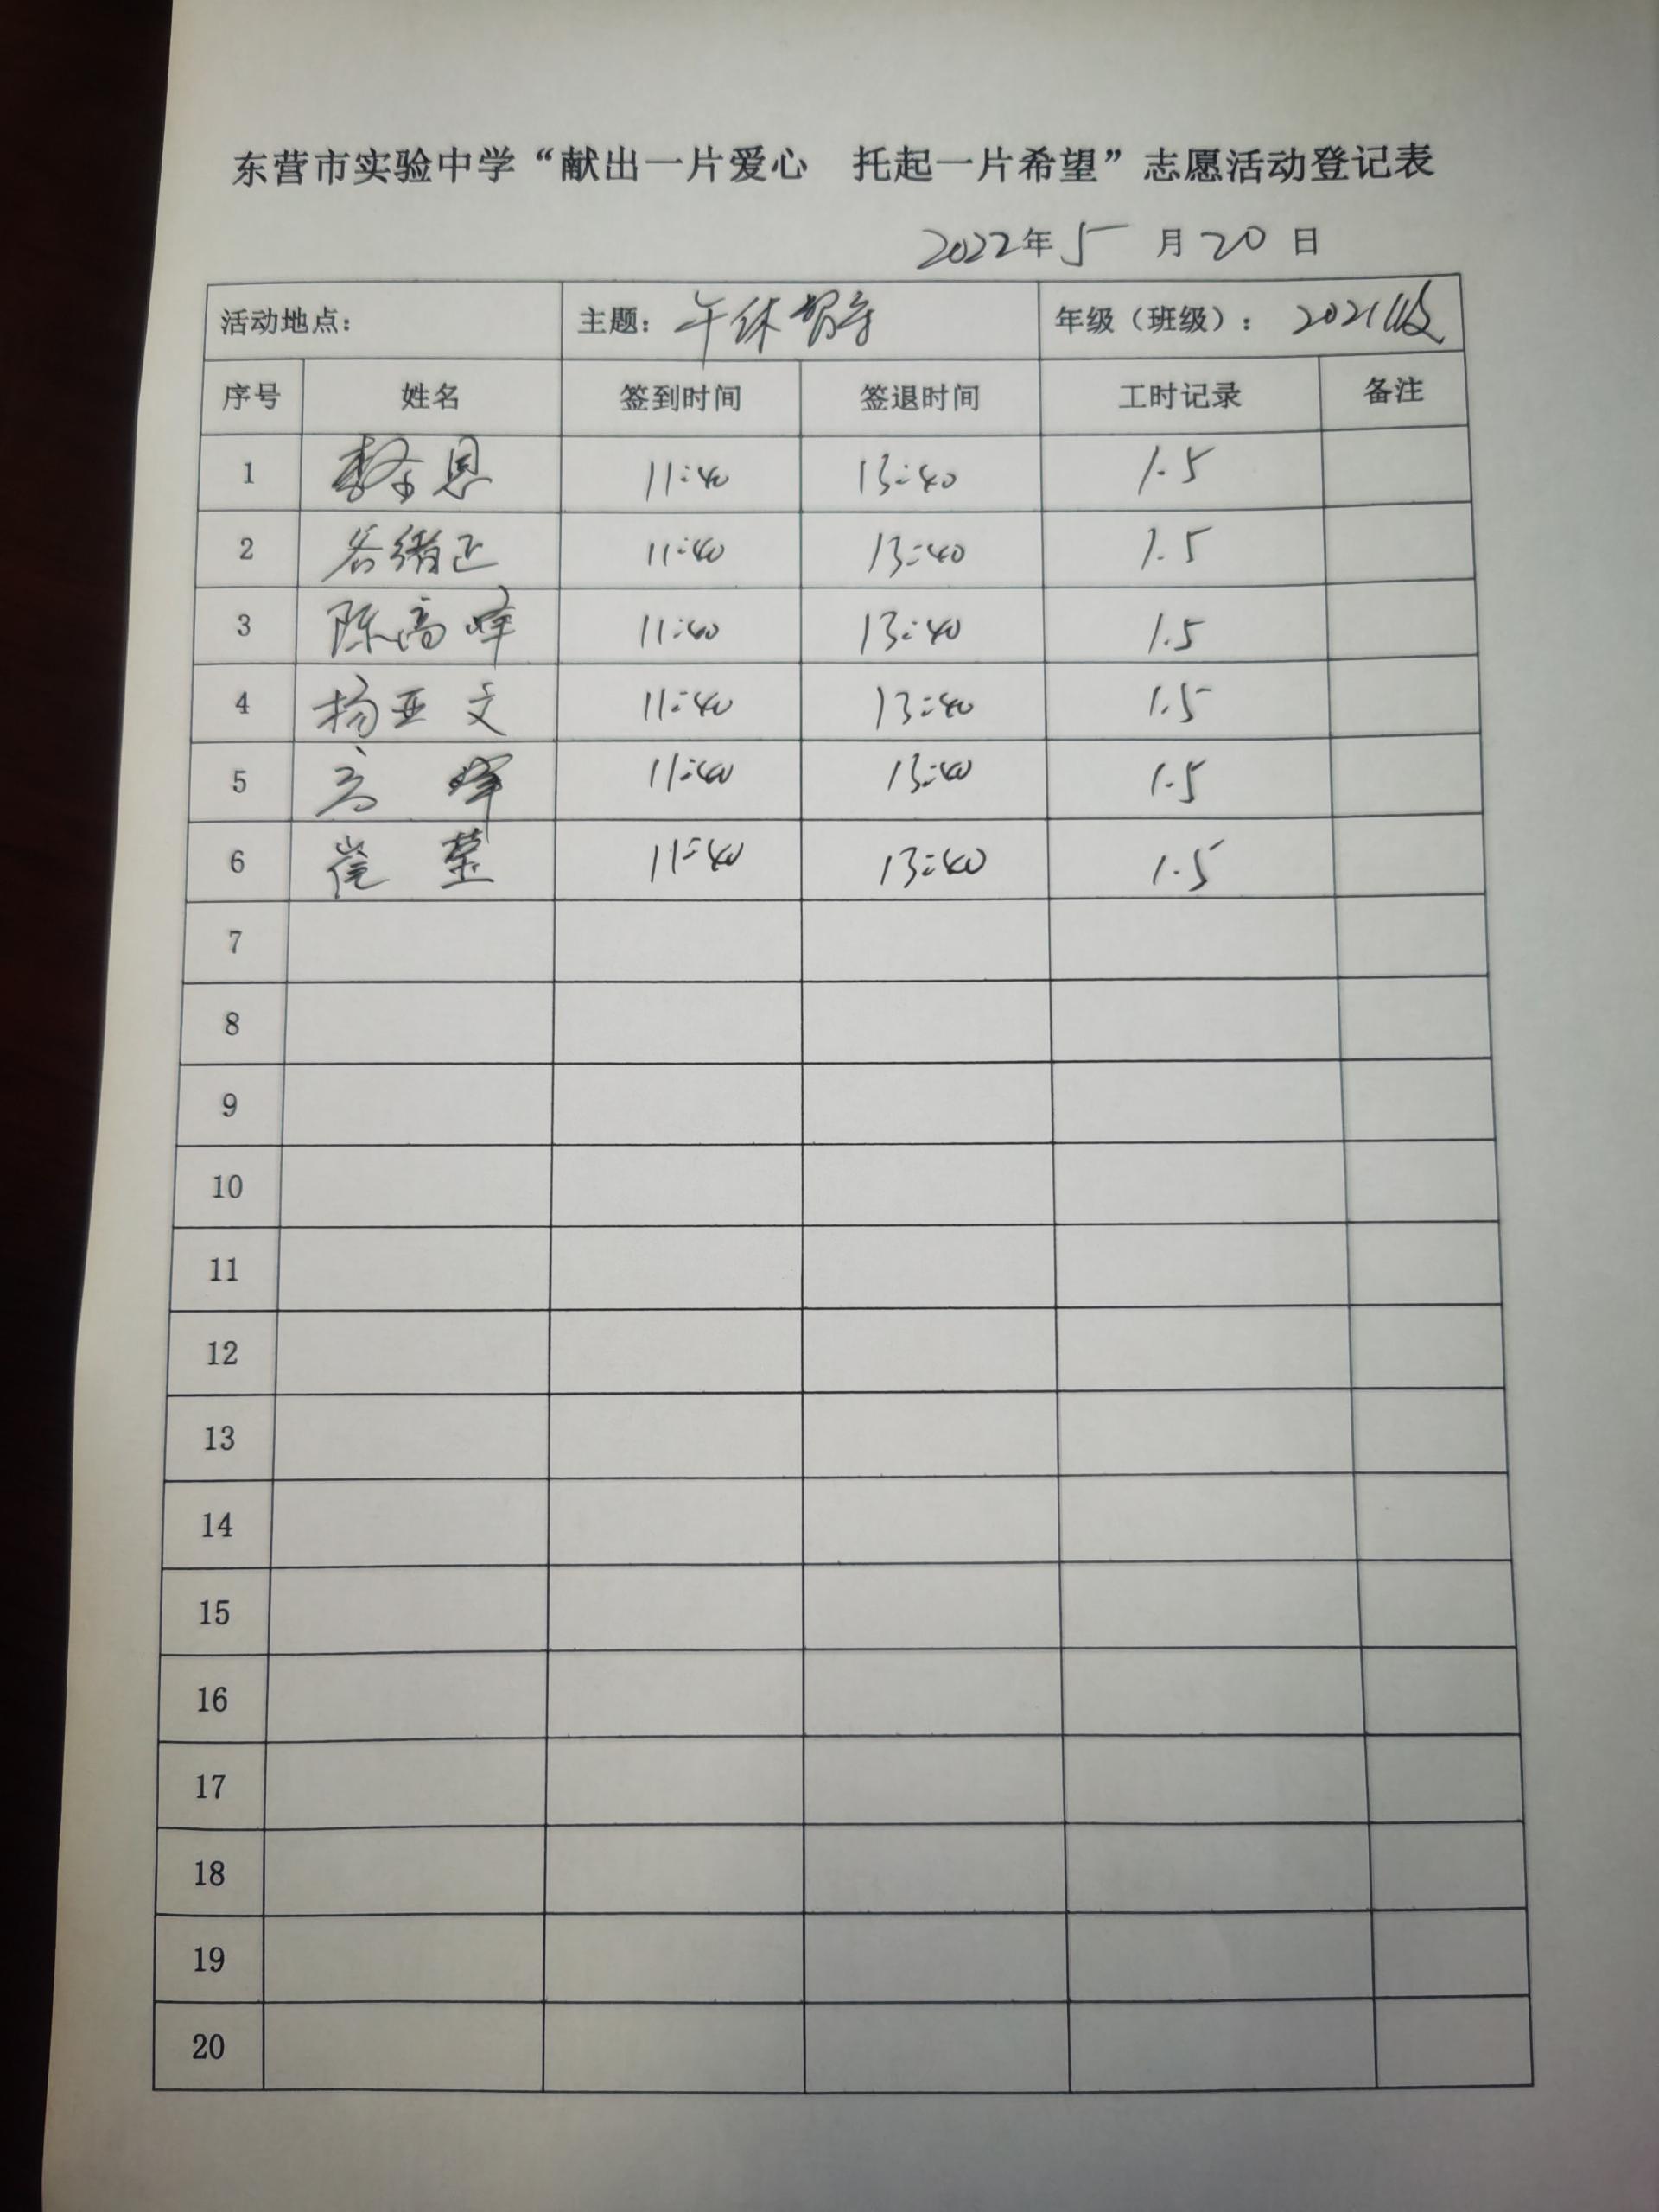 东营市实验中学“献出一片爱心 托起一片希望”志愿活动登记表
2022年5月20日
活动地点： 主题：午休 年级（班级）：2021级
序号 姓名 签到时间 签退时间 工时记录 备注
1 恩 11:40 13:40 1.5
2 谷绪正 11:40 13:40 1.5
3 陈高峰 11:40 13:40 1.5
4 杨亚文 11:40 13:40 1.5
5 高峰 11:40 13:40 1.5
6 崔莹 11:40 13:40 1.5
7
8
9
10
11
12
13
14
15
16
17
18
19
20